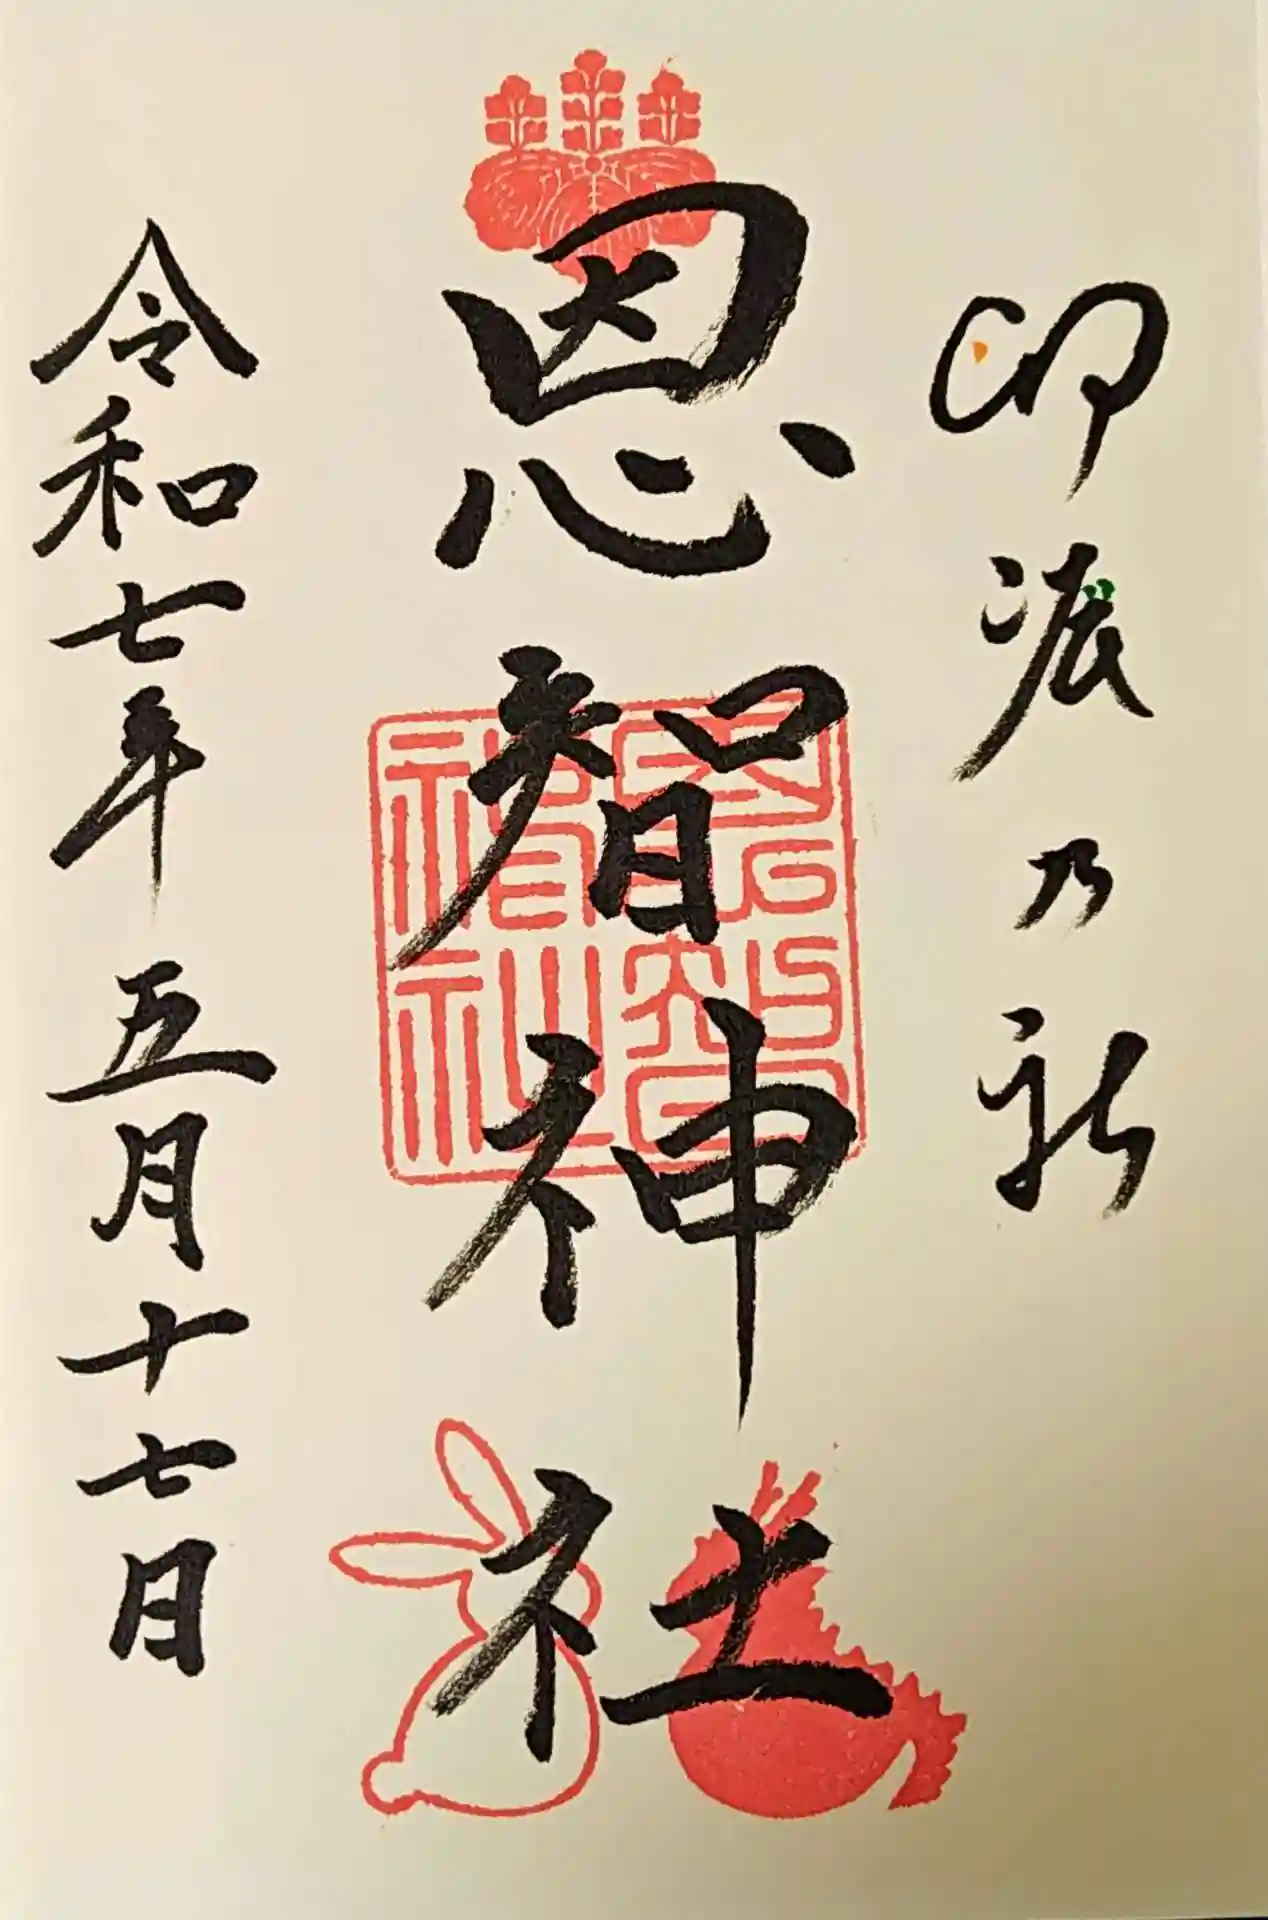 卯辰乃祈
恩智神社
令和七年五月十七日
恩智
神社